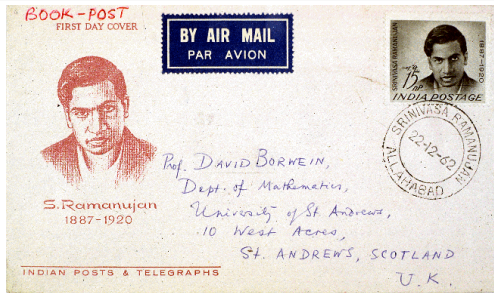 BOOK-POST
FIRST DAY COVER
BY AIR MAIL
PAR AVION
SRINIVASA RAMANUJAN
1887-1920
15 nP
INDIA POSTAGE
SRINIVASA RAMANUJAN
22-12-62
ALLAHABAD
S. Ramanujan
1887-1920
Prof. DAVID BORWEIN,
Dept. of Mathematics,
University of St Andrews,
10 West Acres,
St. ANDREWS, SCOTLAND
U.K.
INDIAN POSTS & TELEGRAPHS